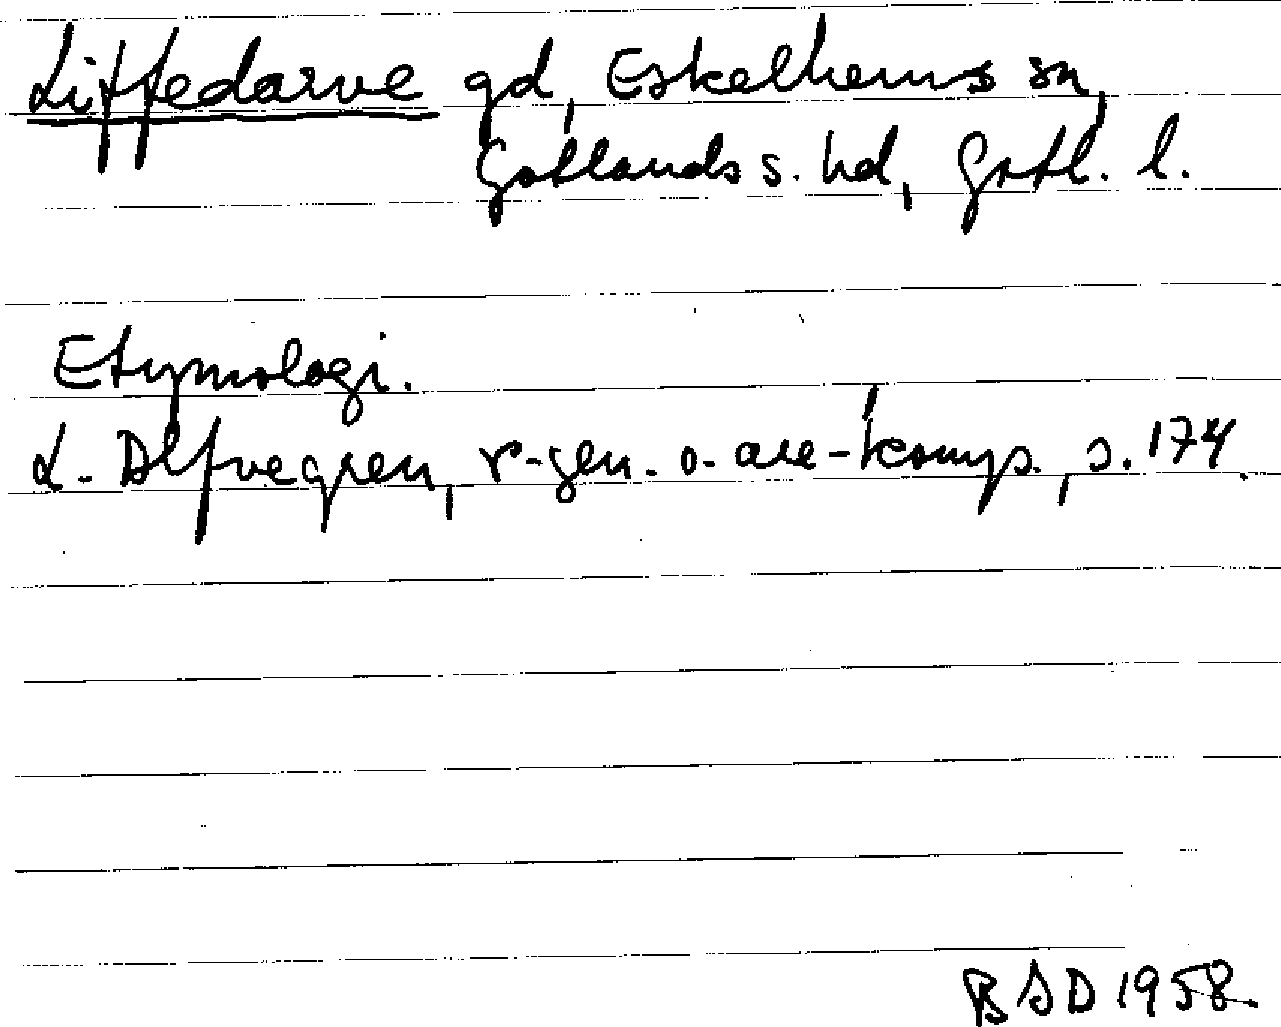 Liffedarve gd, Eskelhems sn,
Gotlands s. hd, Gotl. l.
Etymologi.
L. Alfvegren, r-gen. o. are-komp., s. 174.
BSD 1958